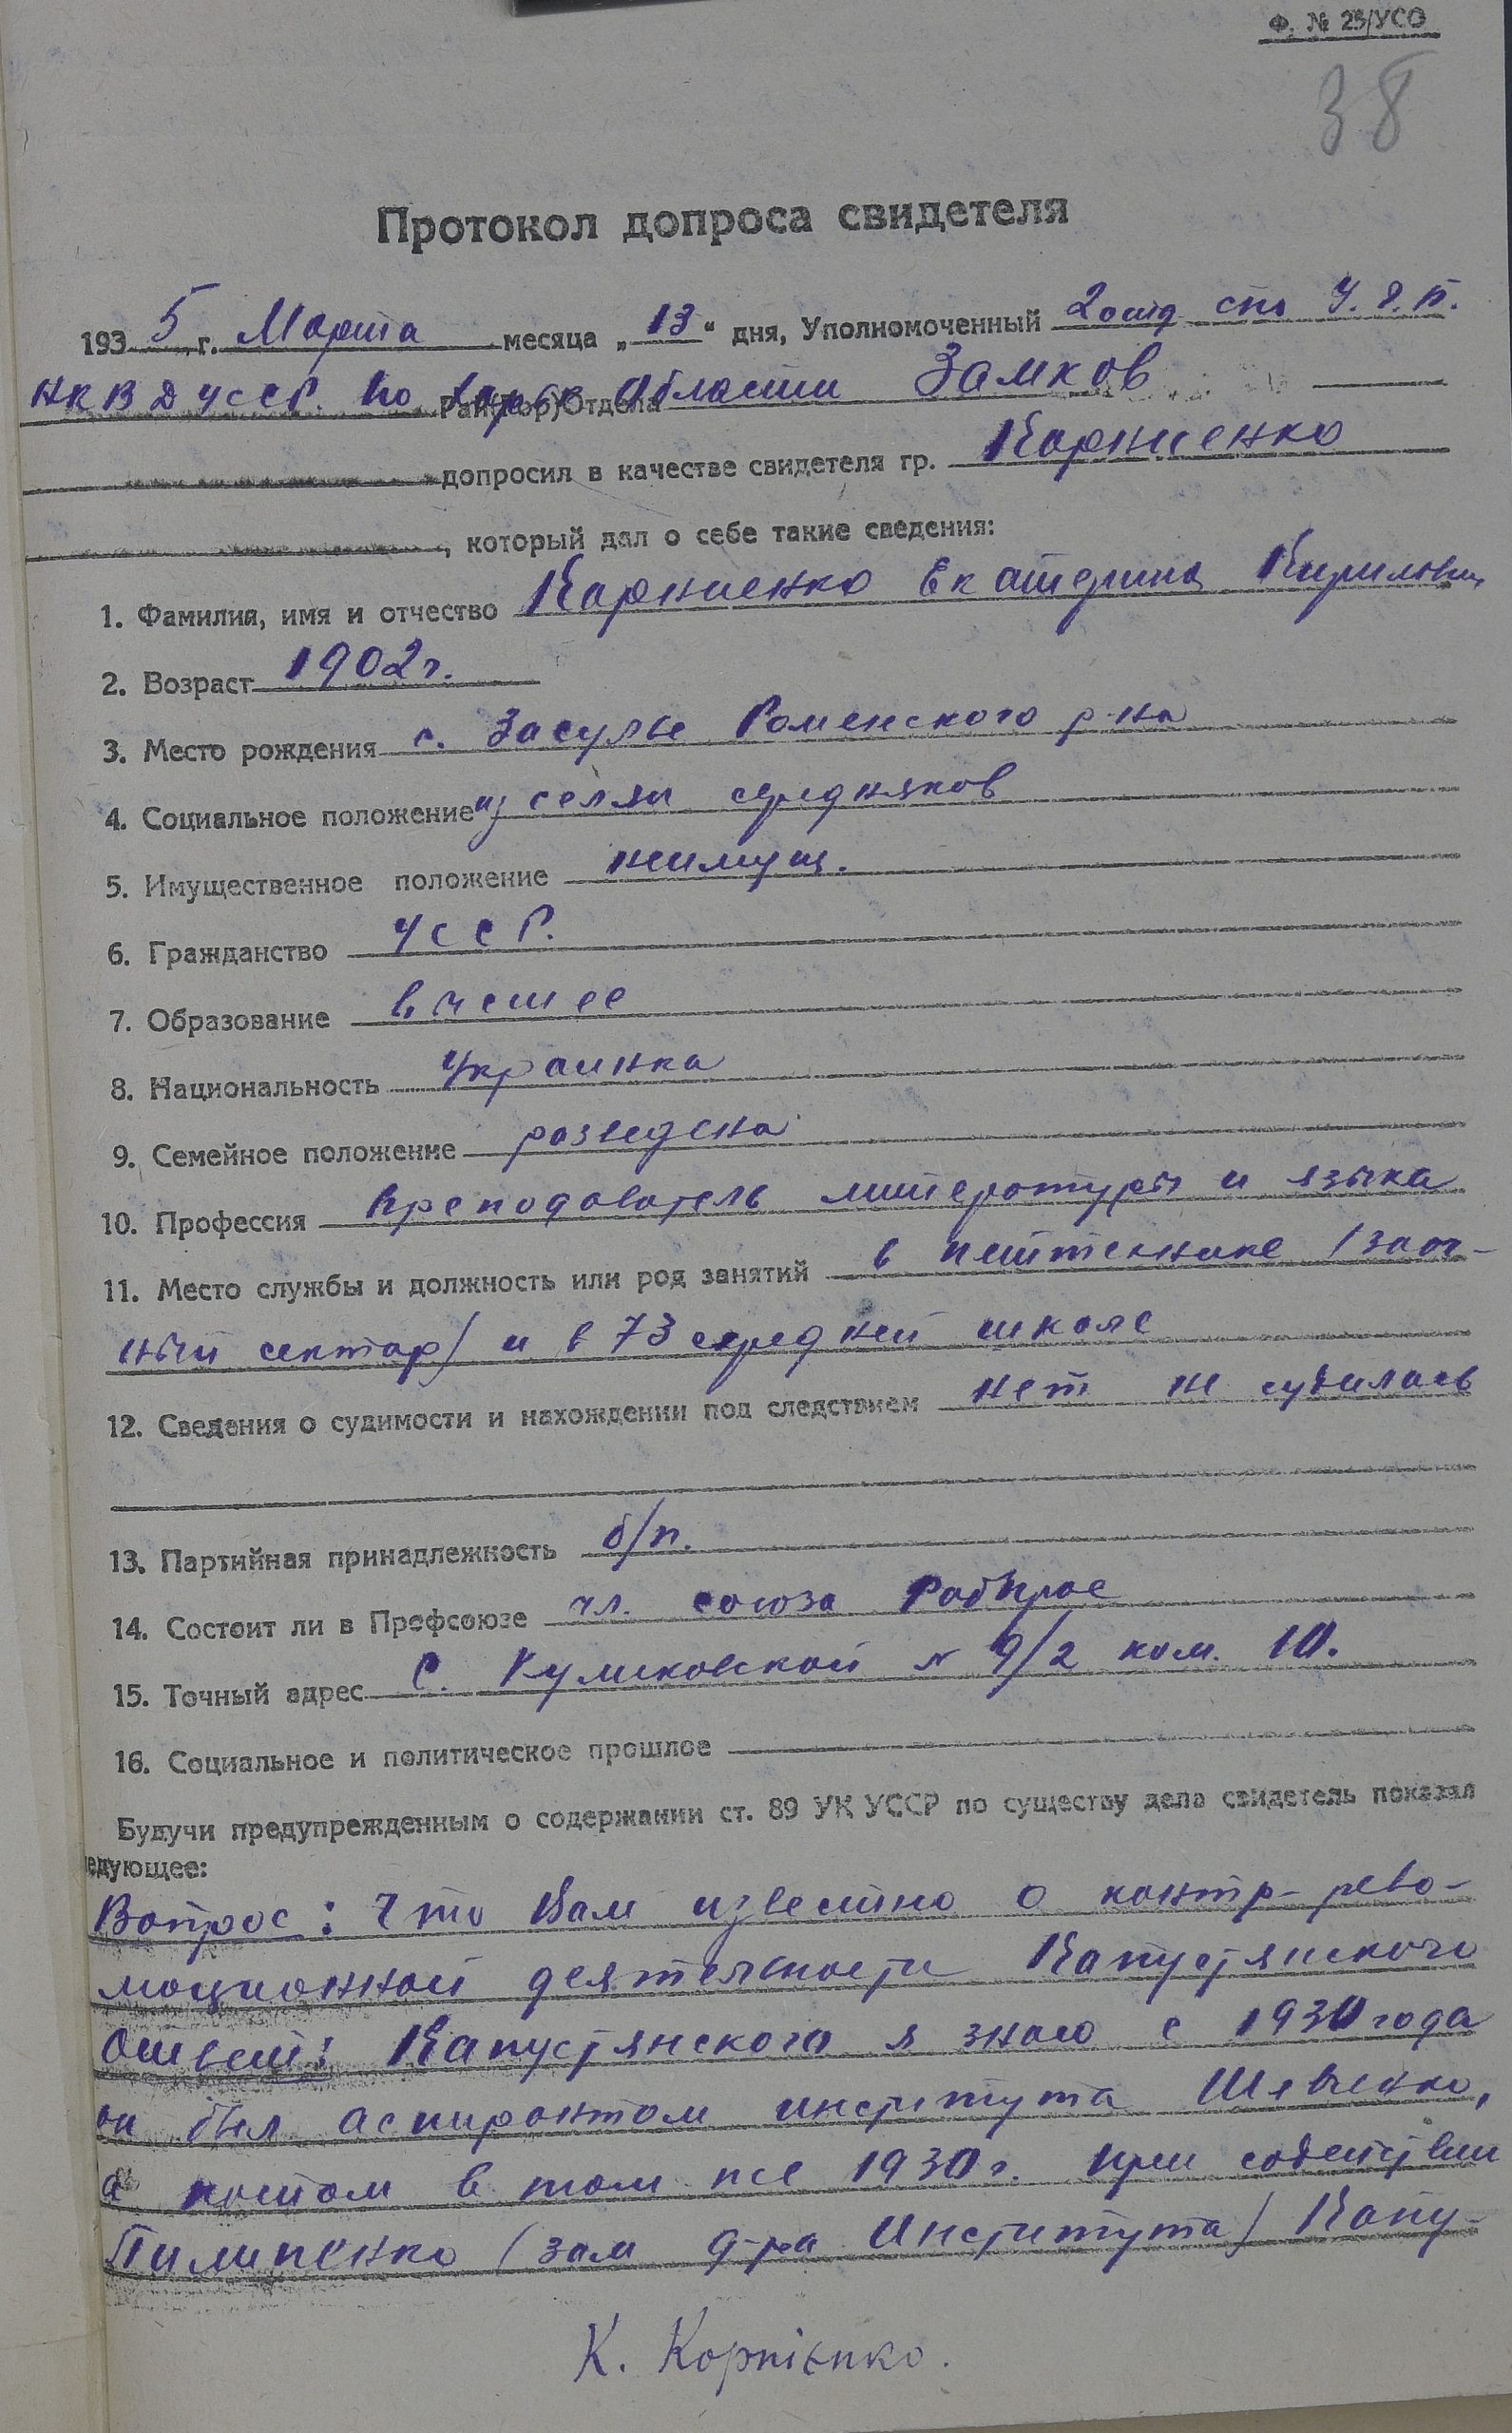 Ф. № 25/УСО
38
Протокол допроса свидетеля
1935 г. Марта месяца „13“ дня, Уполномоченный 2 отд СПО У.Г.Б.
НКВД УССР. по Харьк. Области Рай(Гор)Отдела Замков
допросил в качестве свидетеля гр. Корниенко
, который дал о себе такие сведения:
1. Фамилия, имя и отчество Корниенко Екатерина Кириловн
2. Возраст 1902 г.
3. Место рождения с. Засулье Роменского р-на
4. Социальное положение из селян середняков
5. Имущественное положение неимущ.
6. Гражданство УССР.
7. Образование высшее
8. Национальность Украинка
9. Семейное положение розведена
10. Профессия преподователь литературы и языка
11. Место службы и должность или род занятий в петтехнике (заоч-
ный сектор) и в 73 середней школе
12. Сведения о судимости и нахождении под следствием нет не судилась
13. Партийная принадлежность б/п.
14. Состоит ли в Профсоюзе чл. союза Робпрос
15. Точный адрес С. Куликовской № 9/2 ком. 10.
16. Социальное и политическое прошлое
Будучи предупрежденным о содержании ст. 89 УК УССР по существу дела свидетель показал
ледующее:
Вопрос: Что Вам известно о контр-рево-
люционной деятельности Капустянского
Ответ: Капустянского я знаю с 1930 года
он был аспирантом института Шевченко,
а потом в том же 1930 г. при содействии
Пилипенко (зам д-ра Института) Капу-
К. Корнієнко.